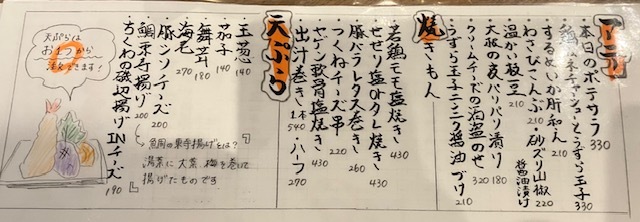 一品
本日のポテサラ 330
鶏ネギチャーシューとうずら玉子 330
するめいか肝和え 210
わさびこんぶ 210・砂ズリ山椒醤油漬け 220
温かい枝豆 210
大根の皮パリパリ漬け 180
クリームチーズの酒盗のせ 320
うずら玉子ニンニク醤油づけ 210
焼きもん
若鶏モモ塩焼き 430
せせり塩orタレ焼き 430
豚バラレタス巻き 260
つくねチーズ串 220
ヤゲン軟骨塩焼き 430
出汁巻き 1本540・ハーフ 270
天ぷら
玉葱 140
茄子 140
舞茸 180
海老 270
豚シソチーズ 200
鯛東寺揚げ 200
ちくわの磯辺揚げINチーズ 190
『鯛の東寺揚げとは?
湯葉に大葉、梅を巻いて
揚げたものです』
天ぷらは
お1つから
注文できます!